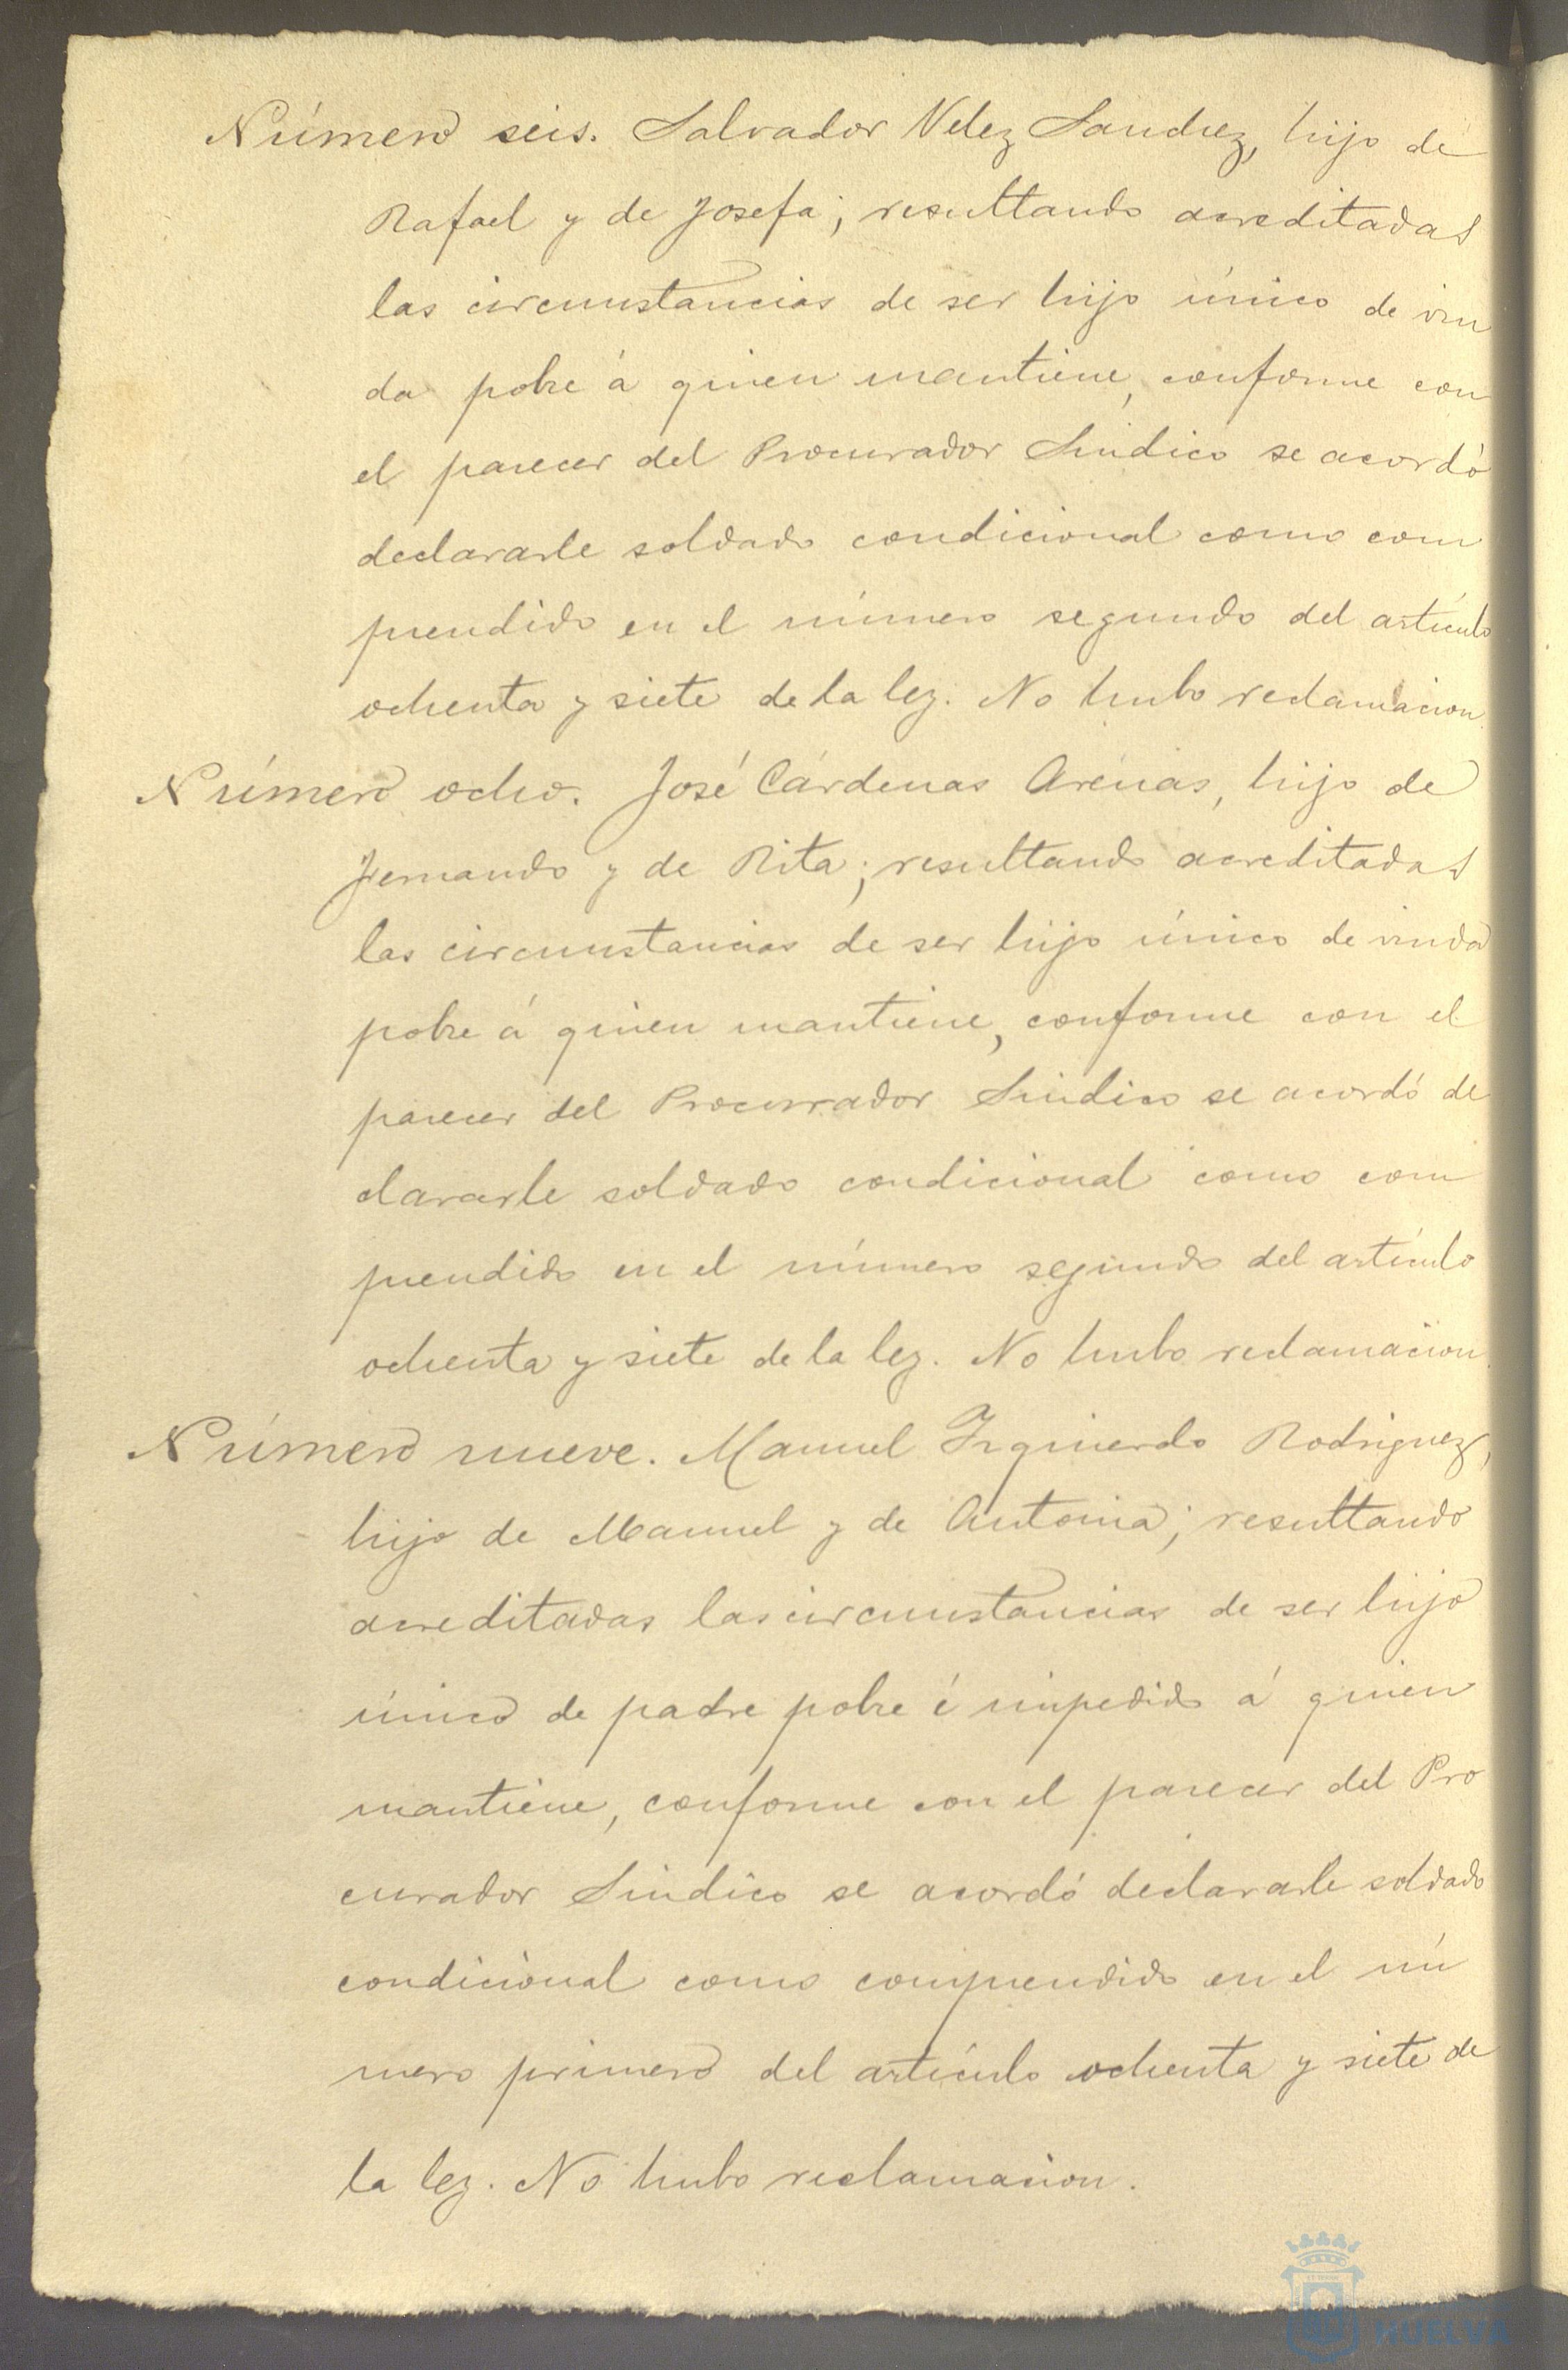 Número seis. Salvador Velez Sanchez, hijo de
Rafael y de Josefa; resultando acreditadas
las circunstancias de ser hijo único de viu
da pobre á quien mantiene, conforme con
el parecer del Procurador Sindico se acordó
declararle soldado condicional como com
prendido en el número segundo del artículo
ochenta y siete de la ley. No hubo reclamacion.
Número ocho. José Cárdenas Arenas, hijo de
Fernando y de Rita; resultando acreditadas
las circunstancias de ser hijo único de viuda
pobre á quien mantiene, conforme con el
parecer del Procurador Sindico se acordó de
clararle soldado condicional como com
prendido en el número segundo del artículo
ochenta y siete de la ley. No hubo reclamacion.
Número nueve. Manuel Izquierdo Rodriguez,
hijo de Manuel y de Antonia; resultando
acreditadas las circunstancias de ser hijo
único de padre pobre é impedido á quien
mantiene, conforme con el parecer del Pro
curador Sindico se acordó declararle soldado
condicional como comprendido en el nú
mero primero del artículo ochenta y siete de
la ley. No hubo reclamacion.
HUELVA